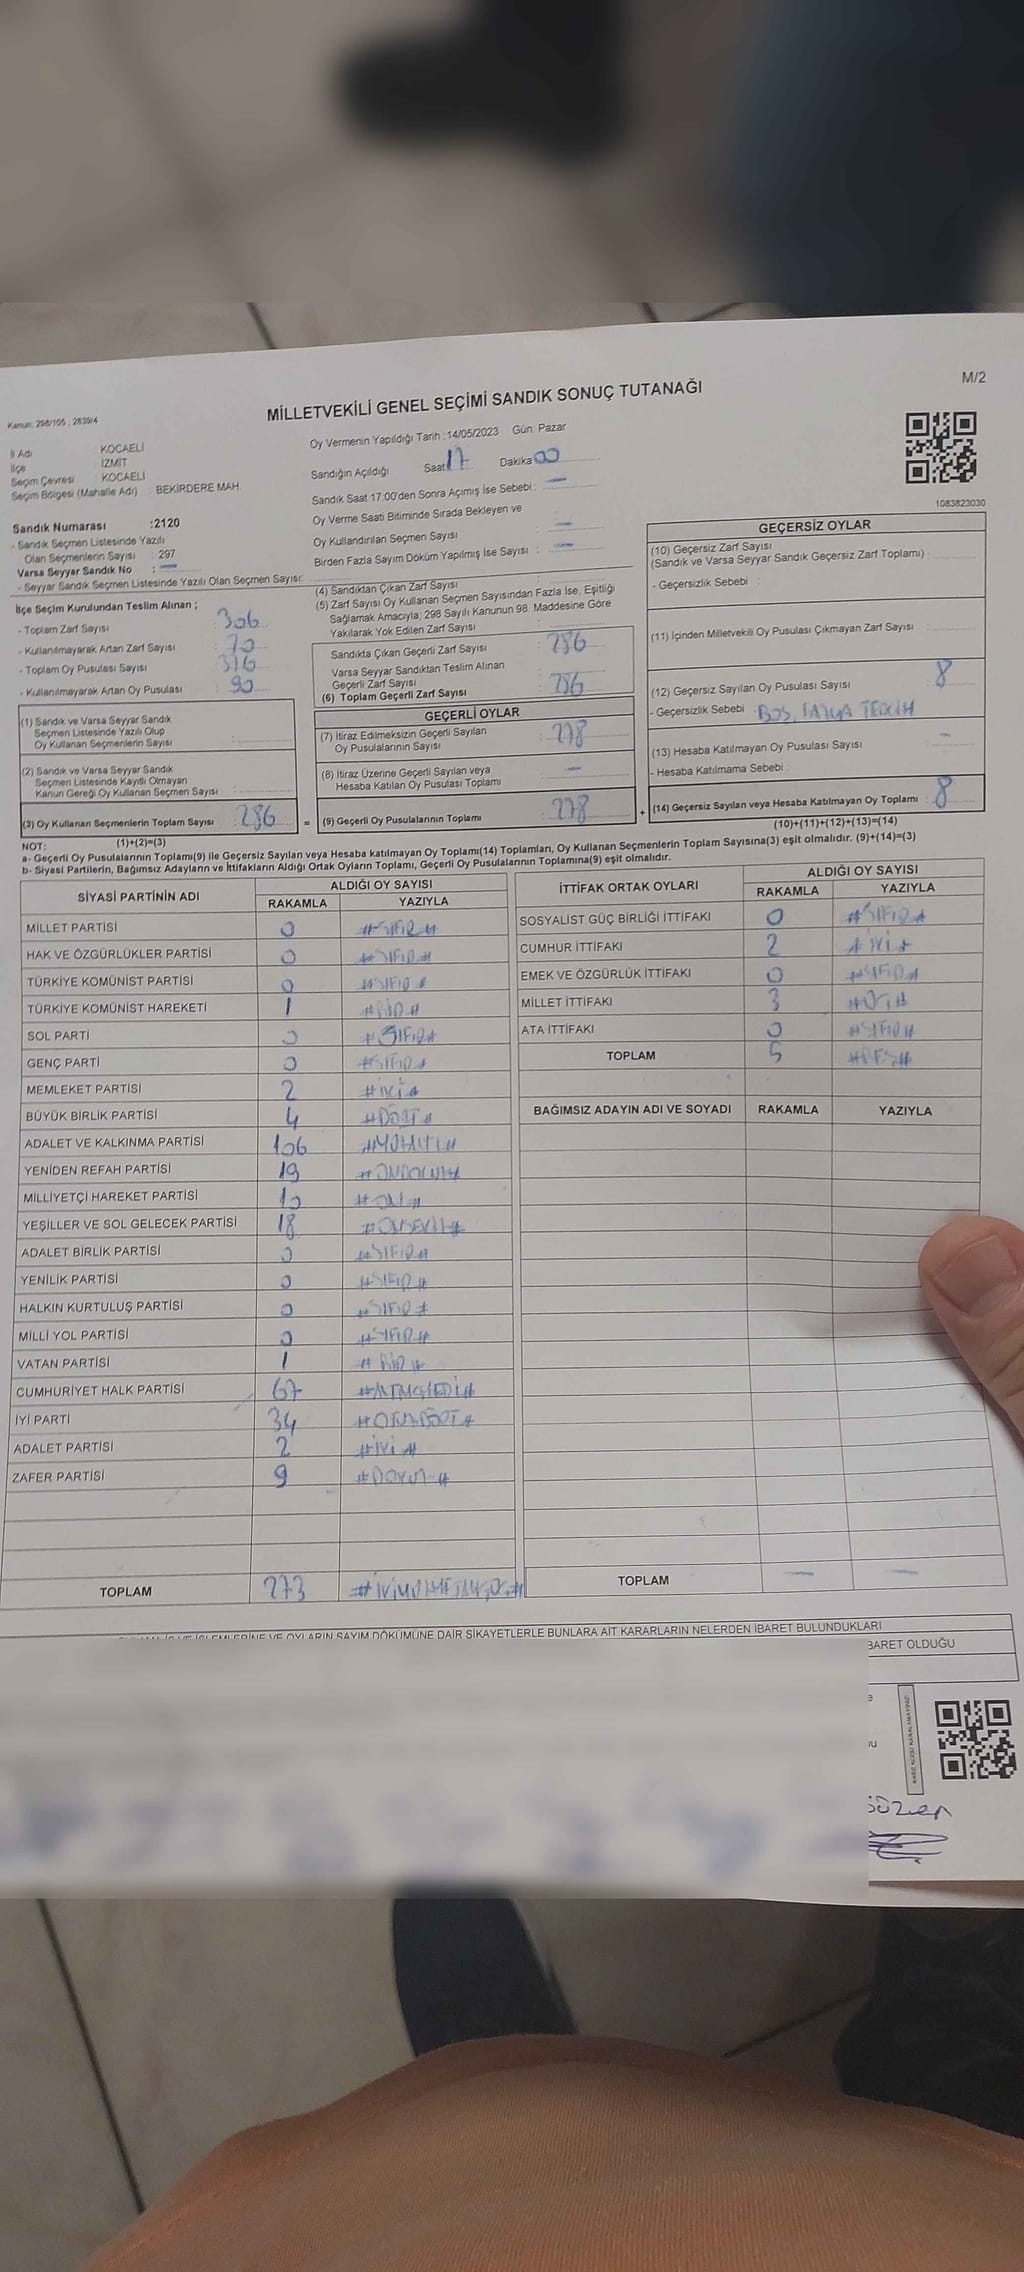 M/2
Kanun: 298/105 , 2839/4
MİLLETVEKİLİ GENEL SEÇİMİ SANDIK SONUÇ TUTANAĞI
İl Adı KOCAELİ
İlçe İZMİT
Seçim Çevresi KOCAELİ
Seçim Bölgesi (Mahalle Adı) : BEKİRDERE MAH.
Oy Vermenin Yapıldığı Tarih :14/05/2023 Gün: Pazar
Sandığın Açıldığı Saat 17 Dakika 00
Sandık Saat 17:00'den Sonra Açımış İse Sebebi : —
Oy Verme Saati Bitiminde Sırada Bekleyen ve
Oy Kullandırılan Seçmen Sayısı : —
Birden Fazla Sayım Döküm Yapılmış İse Sayısı : —
1083823030
Sandık Numarası :2120
- Sandık Seçmen Listesinde Yazılı
Olan Seçmenlerin Sayısı : 297
Varsa Seyyar Sandık No : —
- Seyyar Sandık Seçmen Listesinde Yazılı Olan Seçmen Sayısı:
İlçe Seçim Kurulundan Teslim Alınan ;
- Toplam Zarf Sayısı : 306
- Kullanılmayarak Artan Zarf Sayısı : 20
- Toplam Oy Pusulası Sayısı : 376
- Kullanılmayarak Artan Oy Pusulası : 90
(1) Sandık ve Varsa Seyyar Sandık
Seçmen Listesinde Yazılı Olup
Oy Kullanan Seçmenlerin Sayısı :
(2) Sandık ve Varsa Seyyar Sandık
Seçmen Listesinde Kayıtlı Olmayan
Kanun Gereği Oy Kullanan Seçmen Sayısı :
(3) Oy Kullanan Seçmenlerin Toplam Sayısı : 286
(4) Sandıktan Çıkan Zarf Sayısı :
(5) Zarf Sayısı Oy Kullanan Seçmen Sayısından Fazla İse, Eşitliği
Sağlamak Amacıyla; 298 Sayılı Kanunun 98. Maddesine Göre
Yakılarak Yok Edilen Zarf Sayısı :
Sandıkta Çıkan Geçerli Zarf Sayısı : 286
Varsa Seyyar Sandıktan Teslim Alınan
Geçerli Zarf Sayısı :
(6) Toplam Geçerli Zarf Sayısı : 286
GEÇERLİ OYLAR
(7) İtiraz Edilmeksizin Geçerli Sayılan
Oy Pusulalarının Sayısı : 278
(8) İtiraz Üzerine Geçerli Sayılan veya
Hesaba Katılan Oy Pusulası Toplamı : —
= (9) Geçerli Oy Pusulalarının Toplamı : 278
GEÇERSİZ OYLAR
(10) Geçersiz Zarf Sayısı
(Sandık ve Varsa Seyyar Sandık Geçersiz Zarf Toplamı) :
- Geçersizlik Sebebi :
(11) İçinden Milletvekili Oy Pusulası Çıkmayan Zarf Sayısı :
(12) Geçersiz Sayılan Oy Pusulası Sayısı : 8
- Geçersizlik Sebebi : BOŞ, FAZLA TERCİH
(13) Hesaba Katılmayan Oy Pusulası Sayısı : —
- Hesaba Katılmama Sebebi :
+ (14) Geçersiz Sayılan veya Hesaba Katılmayan Oy Toplamı : 8
NOT: (1)+(2)=(3)
(10)+(11)+(12)+(13)=(14)
a- Geçerli Oy Pusulalarının Toplamı(9) ile Geçersiz Sayılan veya Hesaba katılmayan Oy Toplamı(14) Toplamları, Oy Kullanan Seçmenlerin Toplam Sayısına(3) eşit olmalıdır. (9)+(14)=(3)
b- Siyasi Partilerin, Bağımsız Adayların ve İttifakların Aldığı Ortak Oyların Toplamı, Geçerli Oy Pusulalarının Toplamına(9) eşit olmalıdır.
SİYASİ PARTİNİN ADI ALDIĞI OY SAYISI
RAKAMLA YAZIYLA
MİLLET PARTİSİ 0 #SIFIR#
HAK VE ÖZGÜRLÜKLER PARTİSİ 0 #SIFIR#
TÜRKİYE KOMÜNİST PARTİSİ 0 #SIFIR#
TÜRKİYE KOMÜNİST HAREKETİ 1 #BİR#
SOL PARTİ 0 #SIFIR#
GENÇ PARTİ 0 #SIFIR#
MEMLEKET PARTİSİ 2 #İKİ#
BÜYÜK BİRLİK PARTİSİ 4 #DÖRT#
ADALET VE KALKINMA PARTİSİ 106 #YÜZALTI#
YENİDEN REFAH PARTİSİ 19 #ONDOKUZ#
MİLLİYETÇİ HAREKET PARTİSİ 10 #ON#
YEŞİLLER VE SOL GELECEK PARTİSİ 18 #ONSEKİZ#
ADALET BİRLİK PARTİSİ 0 #SIFIR#
YENİLİK PARTİSİ 0 #SIFIR#
HALKIN KURTULUŞ PARTİSİ 0 #SIFIR#
MİLLİ YOL PARTİSİ 0 #SIFIR#
VATAN PARTİSİ 1 #BİR#
CUMHURİYET HALK PARTİSİ 67 #ATMIŞYEDİ#
İYİ PARTİ 34 #OTUZDÖRT#
ADALET PARTİSİ 2 #İKİ#
ZAFER PARTİSİ 9 #DOKUZ#
TOPLAM 273
İTTİFAK ORTAK OYLARI ALDIĞI OY SAYISI
RAKAMLA YAZIYLA
SOSYALİST GÜÇ BİRLİĞİ İTTİFAKI 0 #SIFIR#
CUMHUR İTTİFAKI 2 #İKİ#
EMEK VE ÖZGÜRLÜK İTTİFAKI 0 #SIFIR#
MİLLET İTTİFAKI 3 #ÜÇ#
ATA İTTİFAKI 0 #SIFIR#
TOPLAM 5 #BEŞ#
BAĞIMSIZ ADAYIN ADI VE SOYADI RAKAMLA YAZIYLA
TOPLAM — —
OYLARIN SAYIM DÖKÜMÜNE DAİR ŞİKAYETLERLE BUNLARA AİT KARARLARIN NELERDEN İBARET BULUNDUKLARI
BARET OLDUĞU
KARE KODU KARALAMAYINIZ!